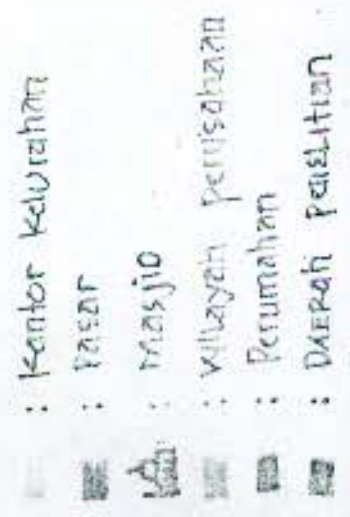 : Kantor Kelurahan
: Pasar
: Masjid
: Wilayah perusahaan
: Perumahan
: DAERah penelitian